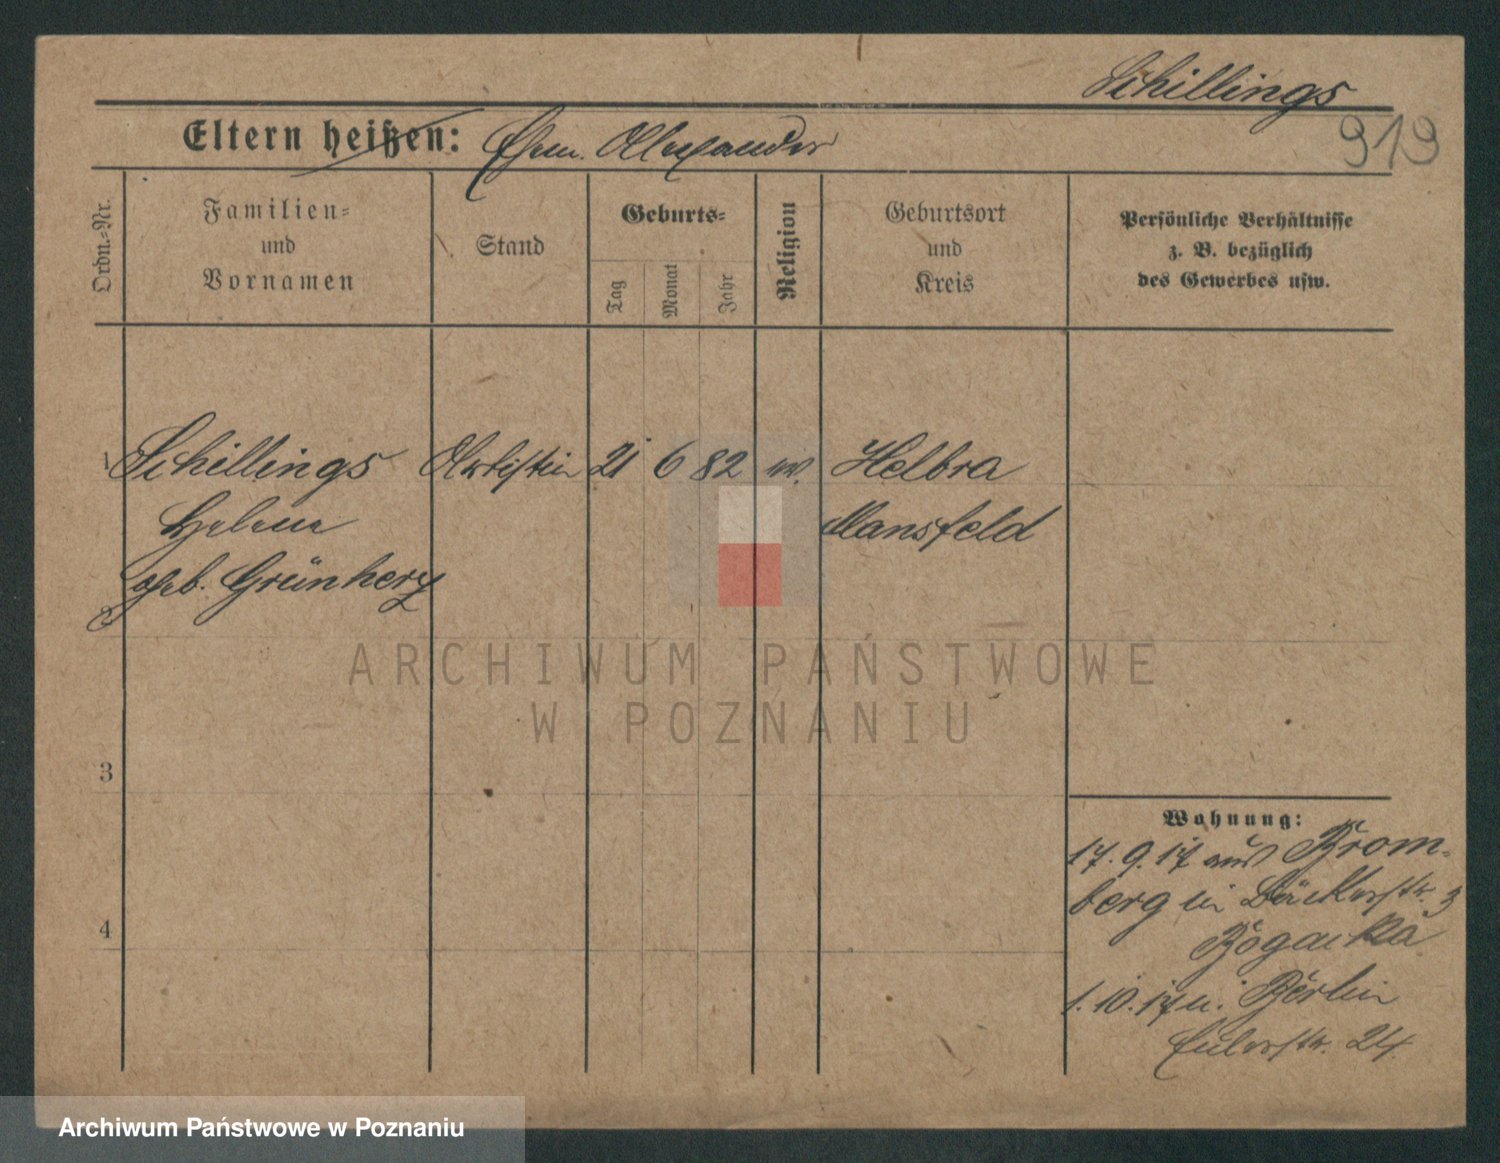 Schillings
919
Eltern heißen: Ehem. Alexander
Ordn.-Nr.
Familien-
und
Vornamen
Stand
Geburts-
Tag
Monat
Jahr
Religion
Geburtsort
und
Kreis
Persönliche Verhältnisse
z. B. bezüglich
des Gewerbes usw.
1 Schillings Artistin 21 6 82 ev. Helbra
Helene Mansfeld
geb. Grünherz
2
ARCHIWUM PAŃSTWOWE
W POZNANIU
3
Wohnung:
17. 9. 17 aus Brom-
berg in Bäckerstr. 3
Bogacka
4
1. 10. 17 n. Berlin
Eulerstr. 24.
Archiwum Państwowe w Poznaniu